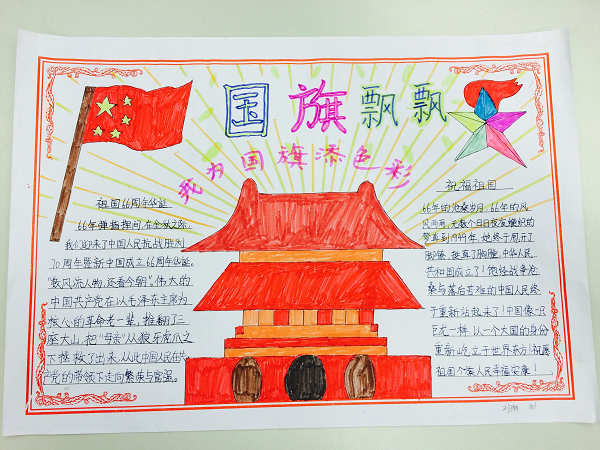 国旗飘飘
我为国旗添色彩
祖国66周年华诞
66年弹指挥间,在金秋之际,
我们迎来了中国人民抗战胜利
70周年暨新中国成立66周年华诞。
"数风流人物,还看今朝"。伟大的
中国共产党在以毛泽东主席为
核心的革命老一辈,推翻了三
座大山,把"母亲"从狼牙虎爪之
下拯救了出来,从此中国人民在共
产党的带领下走向繁荣与富强。
祝福祖国
66年的沧桑岁月,66年的风
风雨雨,无数个日日夜夜编织的
梦直到1949年,她终于甩开了
脚镣,挺直了胸膛,中华人民
共和国成立了!饱经战争沧
桑与落后苦难的中国人民终
于重新站起来了!中国像一只
巨龙一样,以一个大国的身份
重新屹立于世界东方!祝愿
祖国个族人民幸福安康!